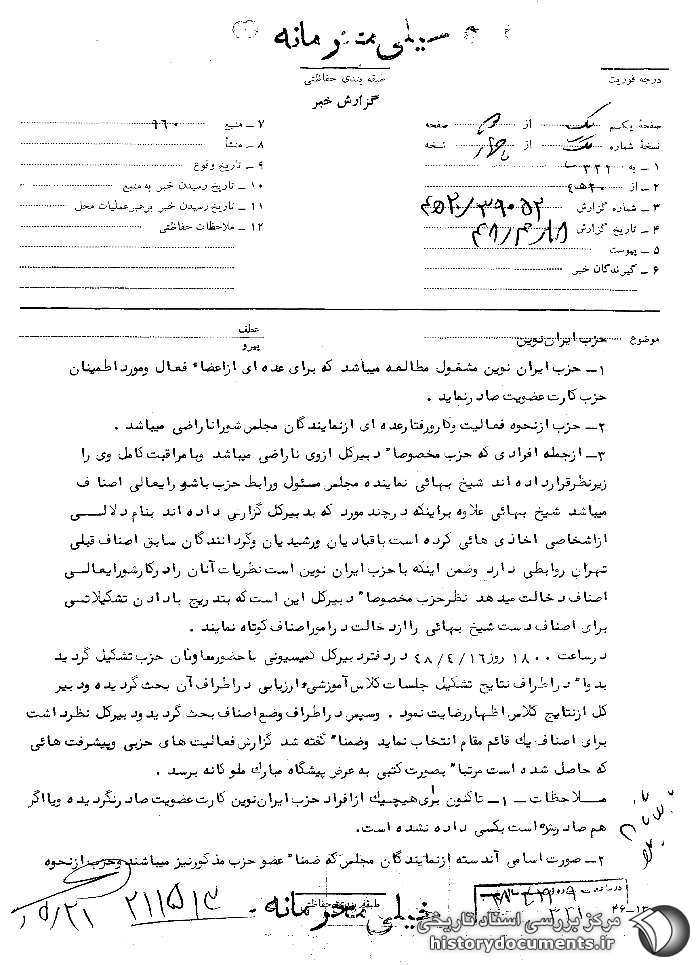 خیلی محرمانه
درجه فوریت
طبقه بندی حفاظتی
گزارش خبر
صفحهٔ یکم یک از صفحه
نسخهٔ شماره یک از چهار نسخه
۱ ـ به ۳۲۲
۲ ـ از ۲۰ ه‍ ۴
۳ ـ شماره گزارش
۴ ـ تاریخ گزارش ۴۸/۴/۱۸
۵ ـ پیوست
۶ ـ گیرندگان خبر
۷ ـ منبع ۶۶۰
۸ ـ منشأ
۹ ـ تاریخ وقوع
۱۰ ـ تاریخ رسیدن خبر به منبع
۱۱ ـ تاریخ رسیدن خبر برهبر عملیات محل
۱۲ ـ ملاحظات حفاظتی
موضوع حزب ایران نوین
عطف
پیرو
۱ـ حزب ایران نوین مشغول مطالعه میباشد که برای عده ای ازاعضاء فعال ومورد اطمینان
حزب کارت عضویت صادرنماید .
۲ـ حزب ازنحوه فعالیت وکارورفتارعده ای ازنمایندگان مجلس شورا ناراضی میباشد .
۳ـ ازجمله افرادی که حزب مخصوصا" دبیرکل ازوی ناراضی میباشد وبا مراقبت کامل وی را
زیرنظرقرارداده اند شیخ بهائی نماینده مجلس مسئول ورابط حزب باشورایعالی اصناف
میباشد شیخ بهائی علاوه براینکه درچند مورد که بدبیرکل گزارش داده اند بنام دلالی
ازاشخاصی اخاذی هائی کرده است باقبادیان ورشیدیان وگردانندگان سابق اصناف قبلی
تهران روابطی دارد وضمن اینکه باحزب ایران نوین است نظریات آنان رادرکارشورایعالی
اصناف دخالت میدهد نظرحزب مخصوصا" دبیرکل این است که بتدریج بادادن تشکیلاتی
برای اصناف دست شیخ بهائی راازدخالت درامور اصناف کوتاه نمایند .
درساعت ۱۸۰۰ روز ۴۸/۴/۱۶ دردفتردبیرکل کمیسیونی باحضورمعاونان حزب تشکیل گردید
بدوا" دراطراف نتایج تشکیل جلسات کلاس آموزشی وارزیابی دراطراف آن بحث گردیده ودبیر
کل ازنتایج کلاس اظهاررضایت نمود . وسپس دراطراف وضع اصناف بحث گردید ودبیرکل نظرداشت
برای اصناف یک قائم مقام انتخاب نماید وضمنا" گفته شد گزارش فعالیت های حزبی وپیشرفت هائی
که حاصل شده است مرتبا" بصورت کتبی به عرض پیشگاه مبارک ملوکانه برسد .
ملاحظات ـ ۱ـ تاکنون برای هیچیک ازافراد حزب ایران نوین کارت عضویت صادرنگردیده ویااگر
هم صادرشده است بکسی داده نشده است .
۲ـ صورت اسامی آندسته ازنمایندگان مجلس که ضمنا" عضو حزب مذکورنیز میباشند وحزب ازنحوه
طبقه بندی حفاظتی
خیلی محرمانه
۲۱۱۵۱۳
مرکز بررسی اسناد تاریخی
historydocuments.ir